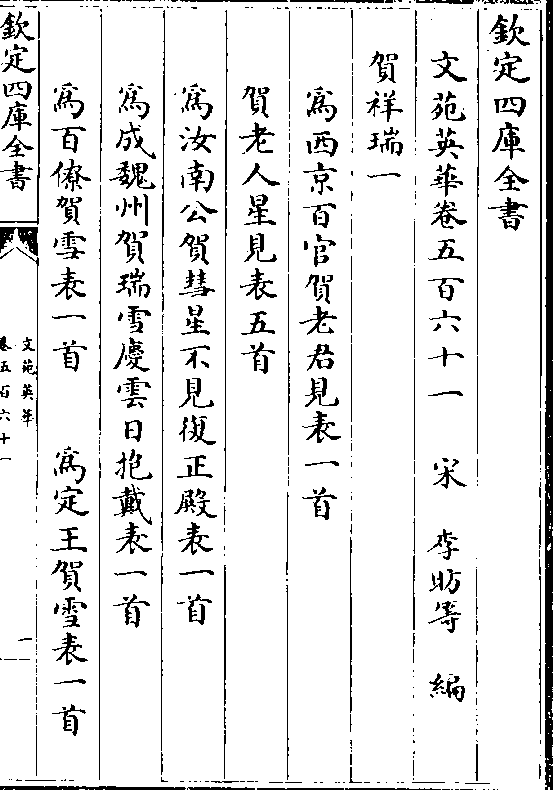 欽定四庫全書
文苑英華卷五百六十一　宋　李昉等　編
賀祥瑞一
爲西京百官賀老君見表一首
賀老人星見表五首
爲汝南公賀彗星不見復正殿表一首
爲成魏州賀瑞雪慶雲日抱戴表一首
爲百僚賀雪表一首　爲定王賀雪表一首
欽定四庫全書
文苑英華
卷五百六十一
一